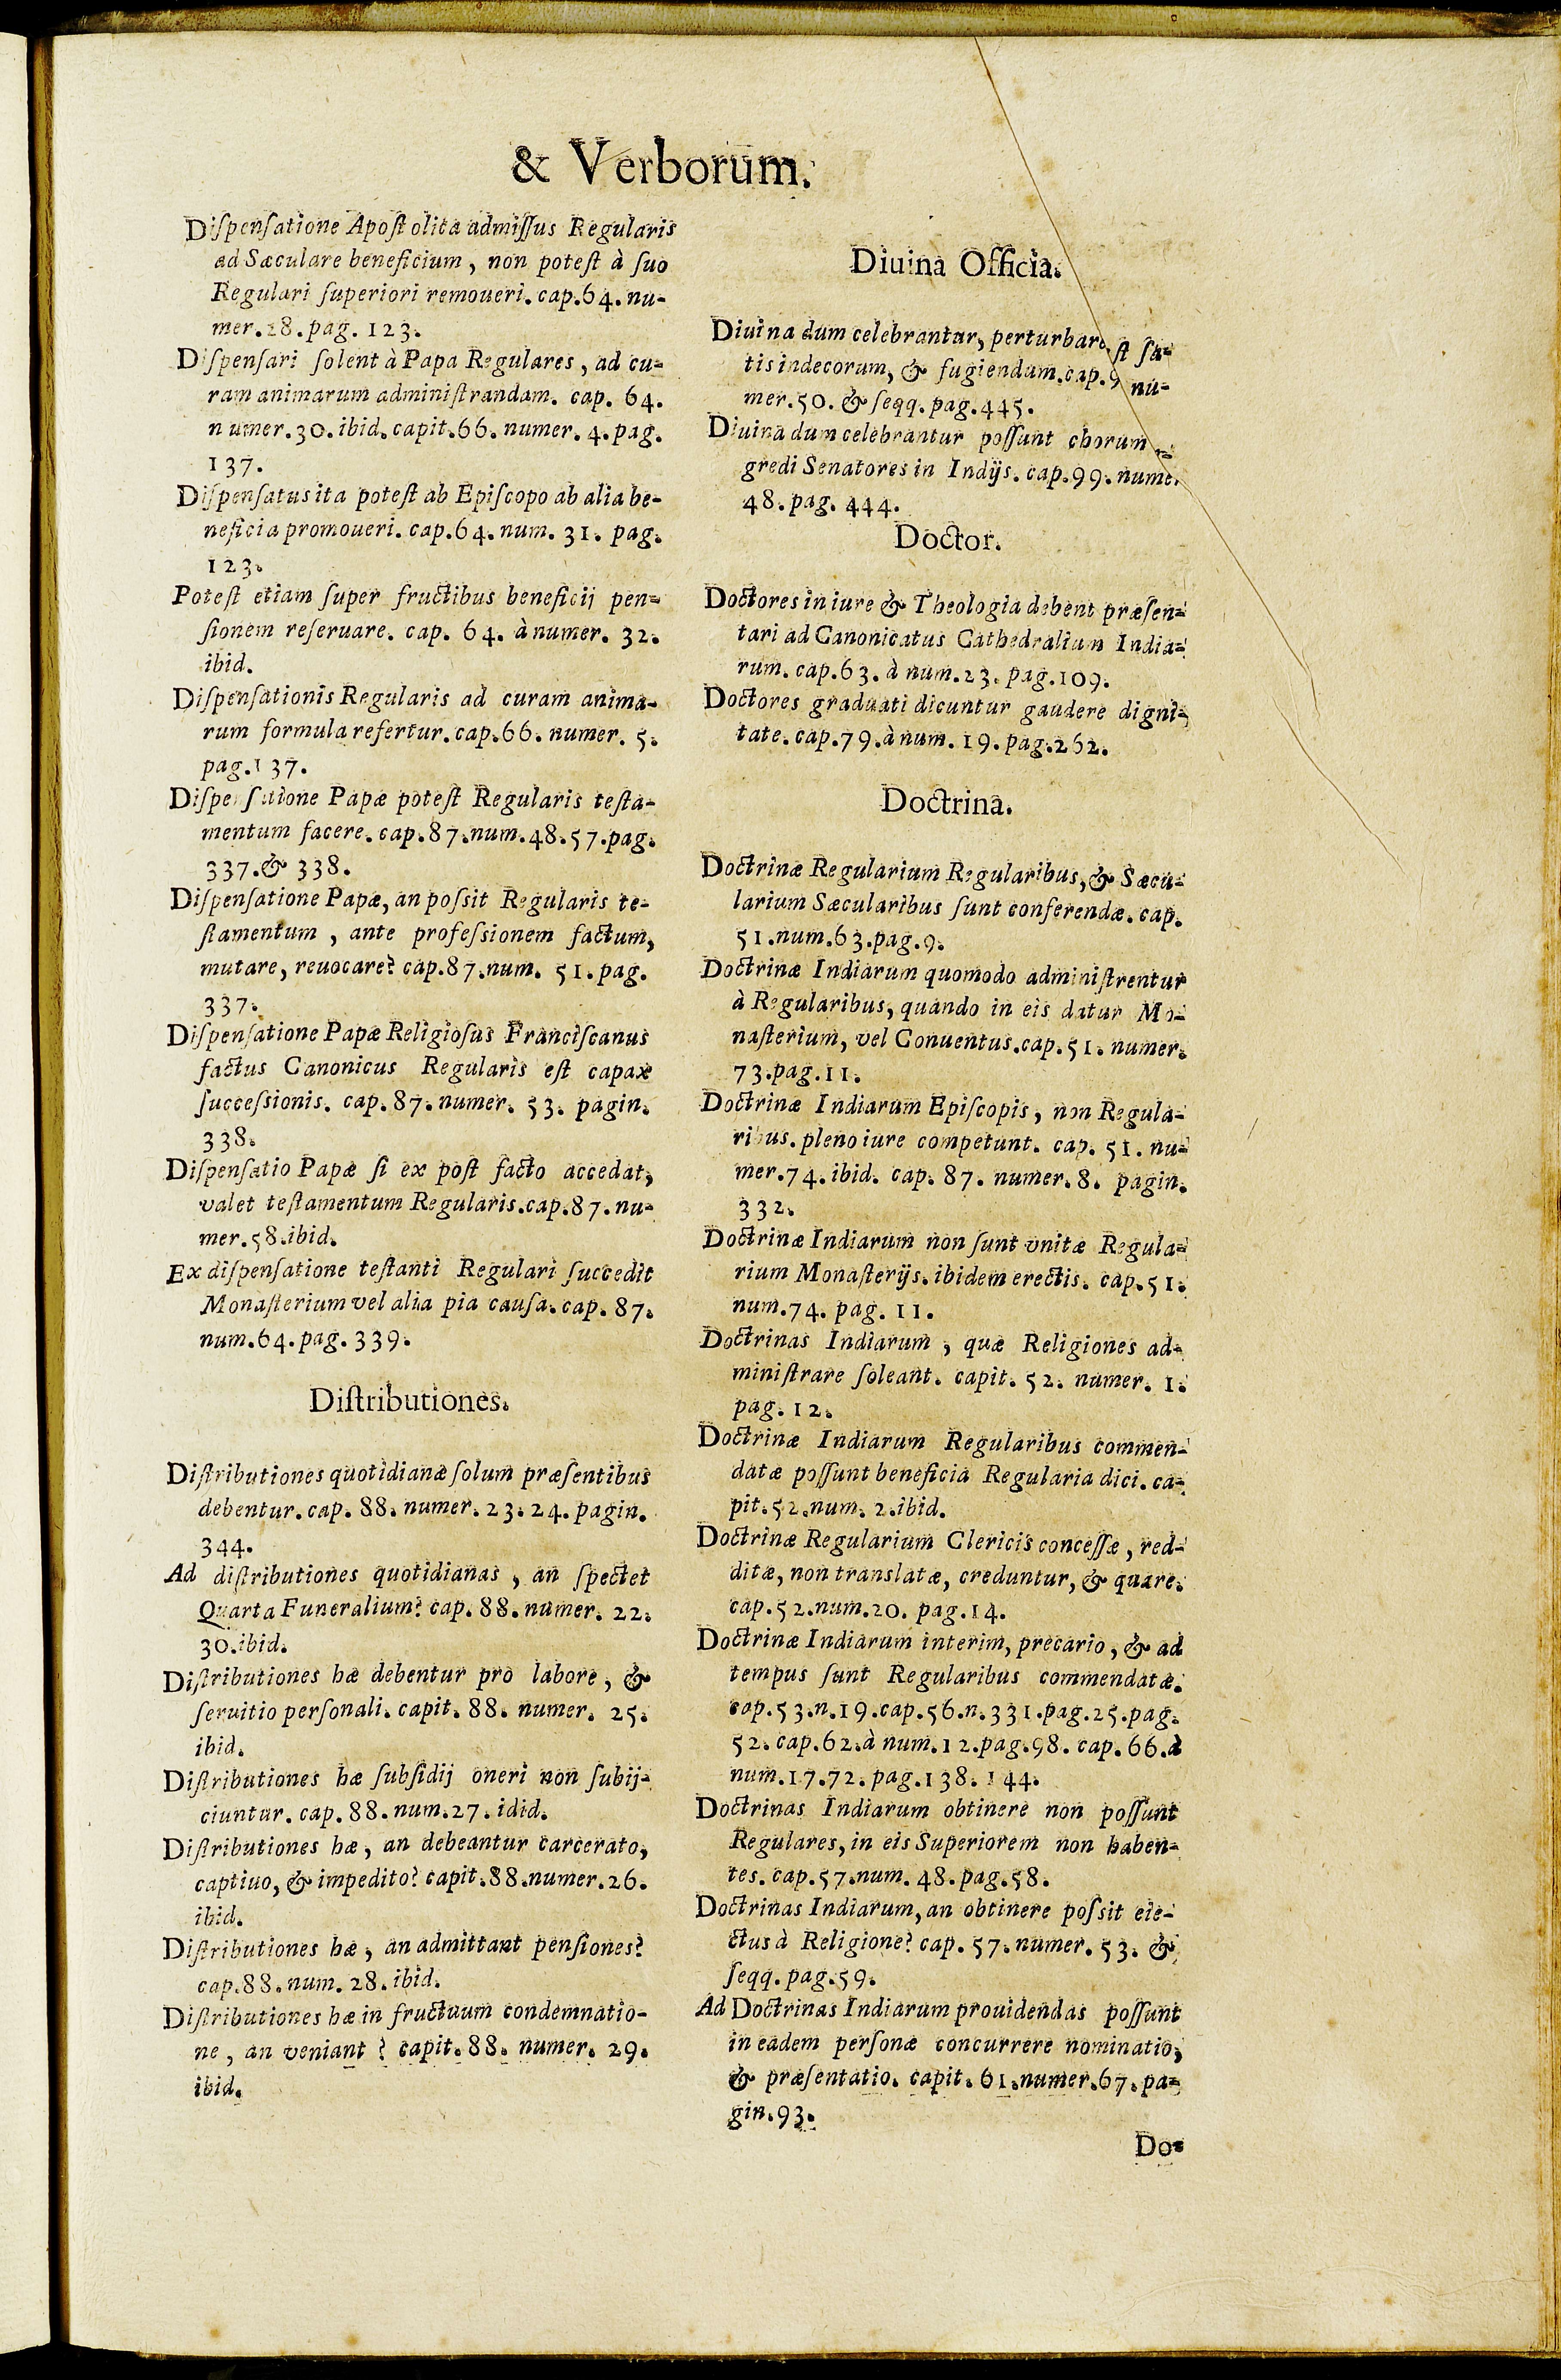 & Verborum.
Diſpenſatione Apoſtolica admiſſus Regularis
ad Sæculare beneficium, non poteſt à ſuo
Regulari ſuperiori remoueri. cap.64. nu-
mer.28.pag. 123.
Diſpenſari ſolent à Papa Regulares, ad cu-
ram animarum adminiſtrandam. cap. 64.
numer.30.ibid.capit.66. numer. 4.pag.
137.
Diſpenſatus ita poteſt ab Epiſcopo ab alia be-
neficia promoueri. cap.64. num. 31. pag.
123.
Poteſt etiam ſuper fructibus beneficij pen-
ſionem reſeruare. cap. 64. à numer. 32.
ibid.
Diſpenſationis Regularis ad curam anima-
rum formula refertur. cap.66. numer. 5.
pag.137.
Diſpenſatione Papæ poteſt Regularis teſta-
mentum facere. cap.87.num.48.57.pag.
337.& 338.
Diſpenſatione Papæ, an poſsit Regularis te-
ſtamentum, ante profeſsionem factum,
mutare, reuocare? cap.87.num. 51.pag.
337.
Diſpenſatione Papæ Religioſus Franciſcanus
factus Canonicus Regularis eſt capax
ſucceſsionis. cap. 87. numer. 53. pagin.
338.
Diſpenſatio Papæ ſi ex poſt facto accedat,
valet teſtamentum Regularis.cap.87.nu-
mer.58.ibid.
Ex diſpenſatione teſtanti Regulari ſuccedit
Monaſterium vel alia pia cauſa. cap. 87.
num.64.pag.339.
Diſtributiones.
Diſtributiones quotidianæ ſolum præſentibus
debentur. cap. 88. numer. 23. 24. pagin.
344.
Ad diſtributiones quotidianas, an ſpectet
Quarta Funeralium? cap. 88. numer. 22.
30.ibid.
Diſtributiones hæ debentur pro labore, &
ſeruitio perſonali. capit. 88. numer. 25.
ibid.
Diſtributiones hæ ſubſidij oneri non ſubij-
ciuntur. cap. 88. num.27. idid.
Diſtributiones hæ, an debeantur carcerato,
captiuo, & impedito? capit.88.numer.26.
ibid.
Diſtributiones hæ, an admittant penſiones?
cap.88.num. 28.ibid.
Diſtributiones hæ in fructuum condemnatio-
ne, an veniant? capit. 88. numer. 29.
ibid.
Diuina Officia.
Diuina dum celebrantur, perturbar ſt ſa-
tis indecorum, & fugiendum.cap.9 nu-
mer.50. & ſeqq. pag.445.
Diuina dum celebrantur poſſunt chorum
gredi Senatores in Indijs. cap.99. nume
48. pag. 444.
Doctor.
Doctores in iure & Theologia debent præſen-
tari ad Canonicatus Cathedralium India-
rum. cap.63. à num.23. pag.109.
Doctores graduati dicuntur gaudere digni-
tate. cap.79.à num. 19. pag.262.
Doctrina.
Doctrinæ Regularium Regularibus, & Sæcu-
larium Sæcularibus ſunt conferendæ. cap.
51.num.63.pag.9.
Doctrinæ Indiarum quomodo adminiſtrentur
à Regularibus, quando in eis datur Mo-
naſterium, vel Conuentus.cap.51. numer.
73.pag.11.
Doctrinæ Indiarum Epiſcopis, non Regula-
ribus. pleno iure competunt. cap. 51. nu-
mer.74. ibid. cap. 87. numer. 8. pagin.
332.
Doctrinæ Indiarum non ſunt vnitæ Regula-
rium Monaſterijs. ibidem erectis. cap.51.
num.74. pag. 11.
Doctrinas Indiarum, quæ Religiones ad-
miniſtrare ſoleant. capit. 52. numer. 1.
pag. 12.
Doctrinæ Indiarum Regularibus commen-
datæ poſſunt beneficia Regularia dici. ca-
pit.52.num. 2.ibid.
Doctrinæ Regularium Clericis conceſſæ, red-
ditæ, non translatæ, creduntur, & quare.
cap.52.num.20. pag.14.
Doctrinæ Indiarum interim, precario, & ad
tempus ſunt Regularibus commendatæ.
cap.53.n.19.cap.56.n.331.pag.25.pag.
52. cap.62.à num.12.pag.98. cap. 66.à
num.17.72. pag.138. 144.
Doctrinas Indiarum obtinere non poſſunt
Regulares, in eis Superiorem non haben-
tes. cap. 57.num. 48.pag.58.
Doctrinas Indiarum, an obtinere poſsit eie-
ctus à Religione? cap. 57. numer. 53. &
ſeqq. pag.59.
Ad Doctrinas Indiarum prouidendas poſſunt
in eadem perſonæ concurrere nominatio,
& præſentatio. capit. 61.numer.67. pa-
gin.93.
Do-